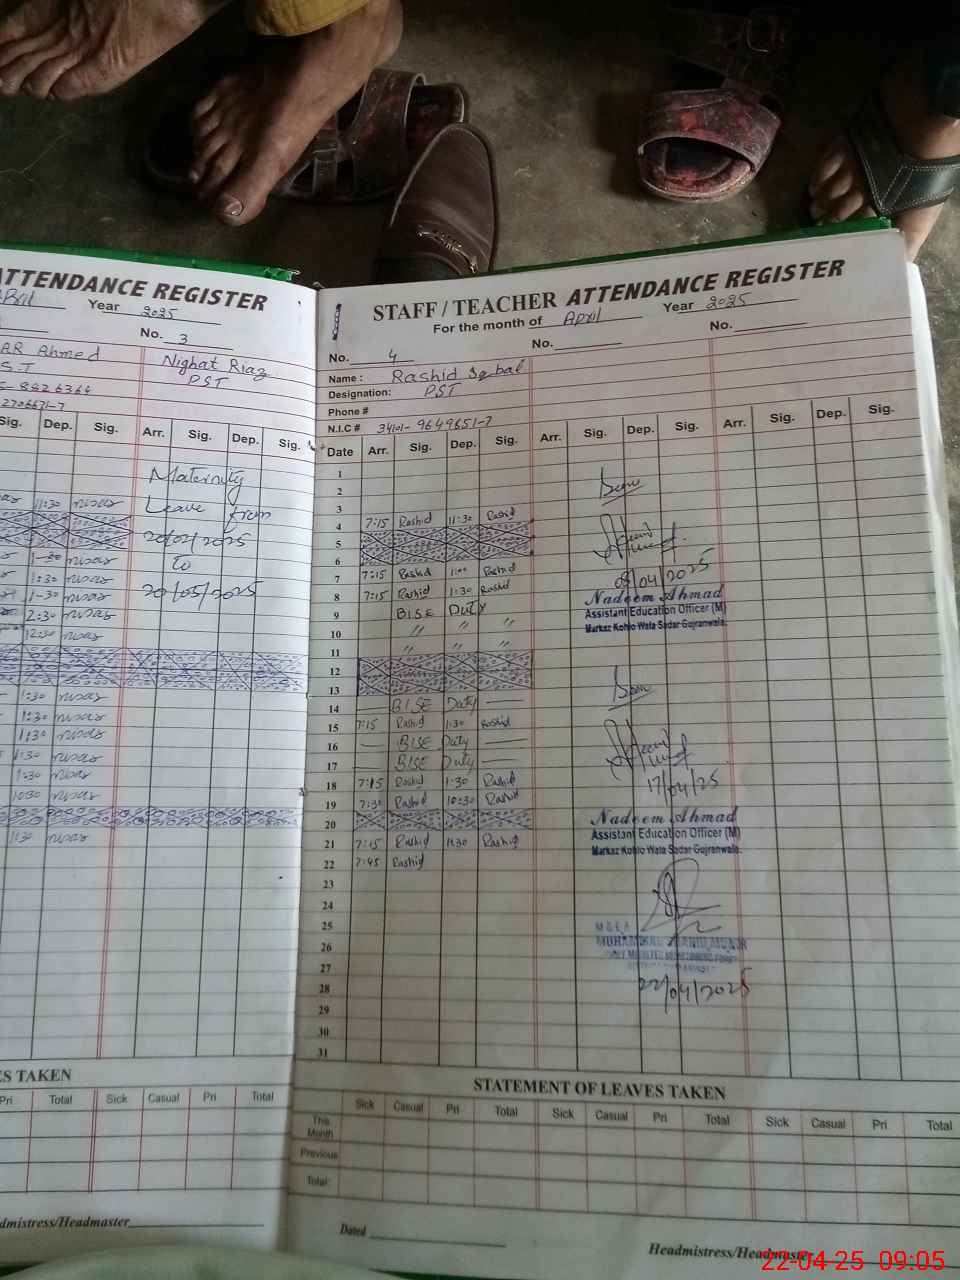 ATTENDANCE REGISTER
Year 2025
No. 3
AR Ahmed
Nighat Riaz
S.T
PST
Sig. Dep. Sig. Arr. Sig. Dep. Sig.
Maternity
11:30 nisar
Leave from
20/02/2025
1-30 nisar
to
1:30 nisar
1-30 nisar
20/05/2025
2:30 nisar
12:30 nisar
1:30 nisar
1:30 nisar
1:30 nisar
1:30 nisar
1:30 nisar
10:30 nisar
1:30 nisar
ES TAKEN
Pri Total Sick Casual Pri Total
dmistress/Headmaster
STAFF / TEACHER ATTENDANCE REGISTER
For the month of April Year 2025
No. 4 No. No.
Name : Rashid Iqbal
Designation: PST
Phone #
N.I.C # 34101-9649651-7
Date Arr. Sig. Dep. Sig. Arr. Sig. Dep. Sig. Arr. Sig. Dep. Sig.
1
2
3
4 7:15 Rashid 11:30 Rashid
5
6
7 7:15 Rashid 1:00 Rashid
8 7:15 Rashid 1:30 Rashid
9 BISE Duty
10 " " "
11 " " "
12
13
14 BISE Duty
15 7:15 Rashid 1:30 Rashid
16 BISE Duty
17 BISE Duty
18 7:15 Rashid 1:30 Rashid
19 7:30 Rashid 10:30 Rashid
20
21 7:15 Rashid 1:30 Rashid
22 7:45 Rashid
23
24
25
26
27
28
29
30
31
08/04/2025
Nadeem Ahmad
Assistant Education Officer (M)
Markaz Kohlo Wala Sadar Gujranwala.
17/04/25
Nadeem Ahmad
Assistant Education Officer (M)
Markaz Kohlo Wala Sadar Gujranwala.
M.E.A
22/04/2025
STATEMENT OF LEAVES TAKEN
Sick Casual Pri Total Sick Casual Pri Total Sick Casual Pri Total
This Month
Previous
Total:
Dated
Headmistress/Headmaster
22-04-25 09:05